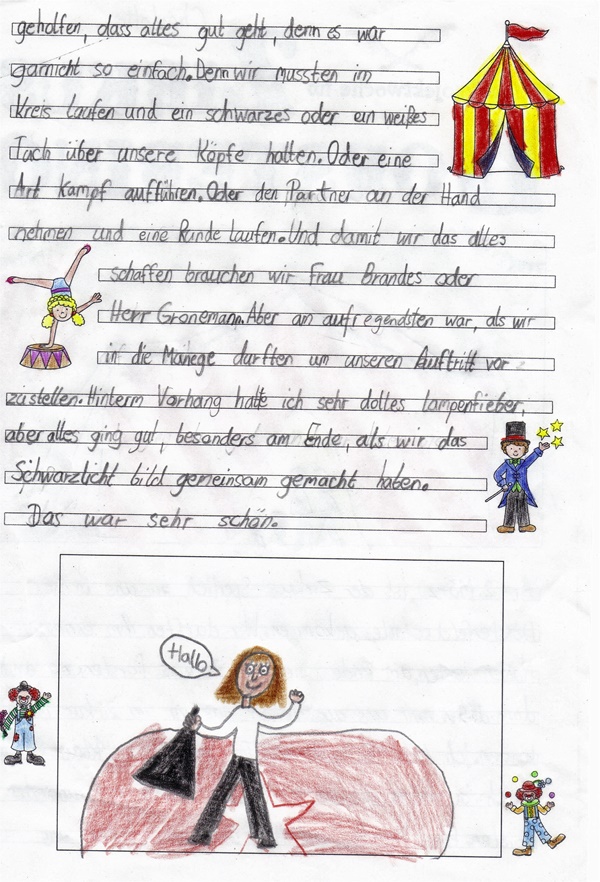 geholfen, dass alles gut geht, denn es war
garnicht so einfach. Denn wir mussten im
Kreis laufen und ein schwarzes oder ein weißes
Tach über unsere Köpfe halten. Oder eine
Art Kampf aufführen. Oder den Partner an der Hand
nehmen und eine Runde laufen. Und damit wir das alles
schaffen brauchen wir Frau Brandes oder
Herr Gronemann. Aber am aufregendsten war, als wir
in die Manege durften um unseren Auftritt vor
zustellen. Hinterm Vorhang hatte ich sehr dolles lampenfieber,
aber alles ging gut, besonders am Ende, als wir das
Schwarzlicht bild gemeinsam gemacht haben.
Das war sehr schön.
Hallo